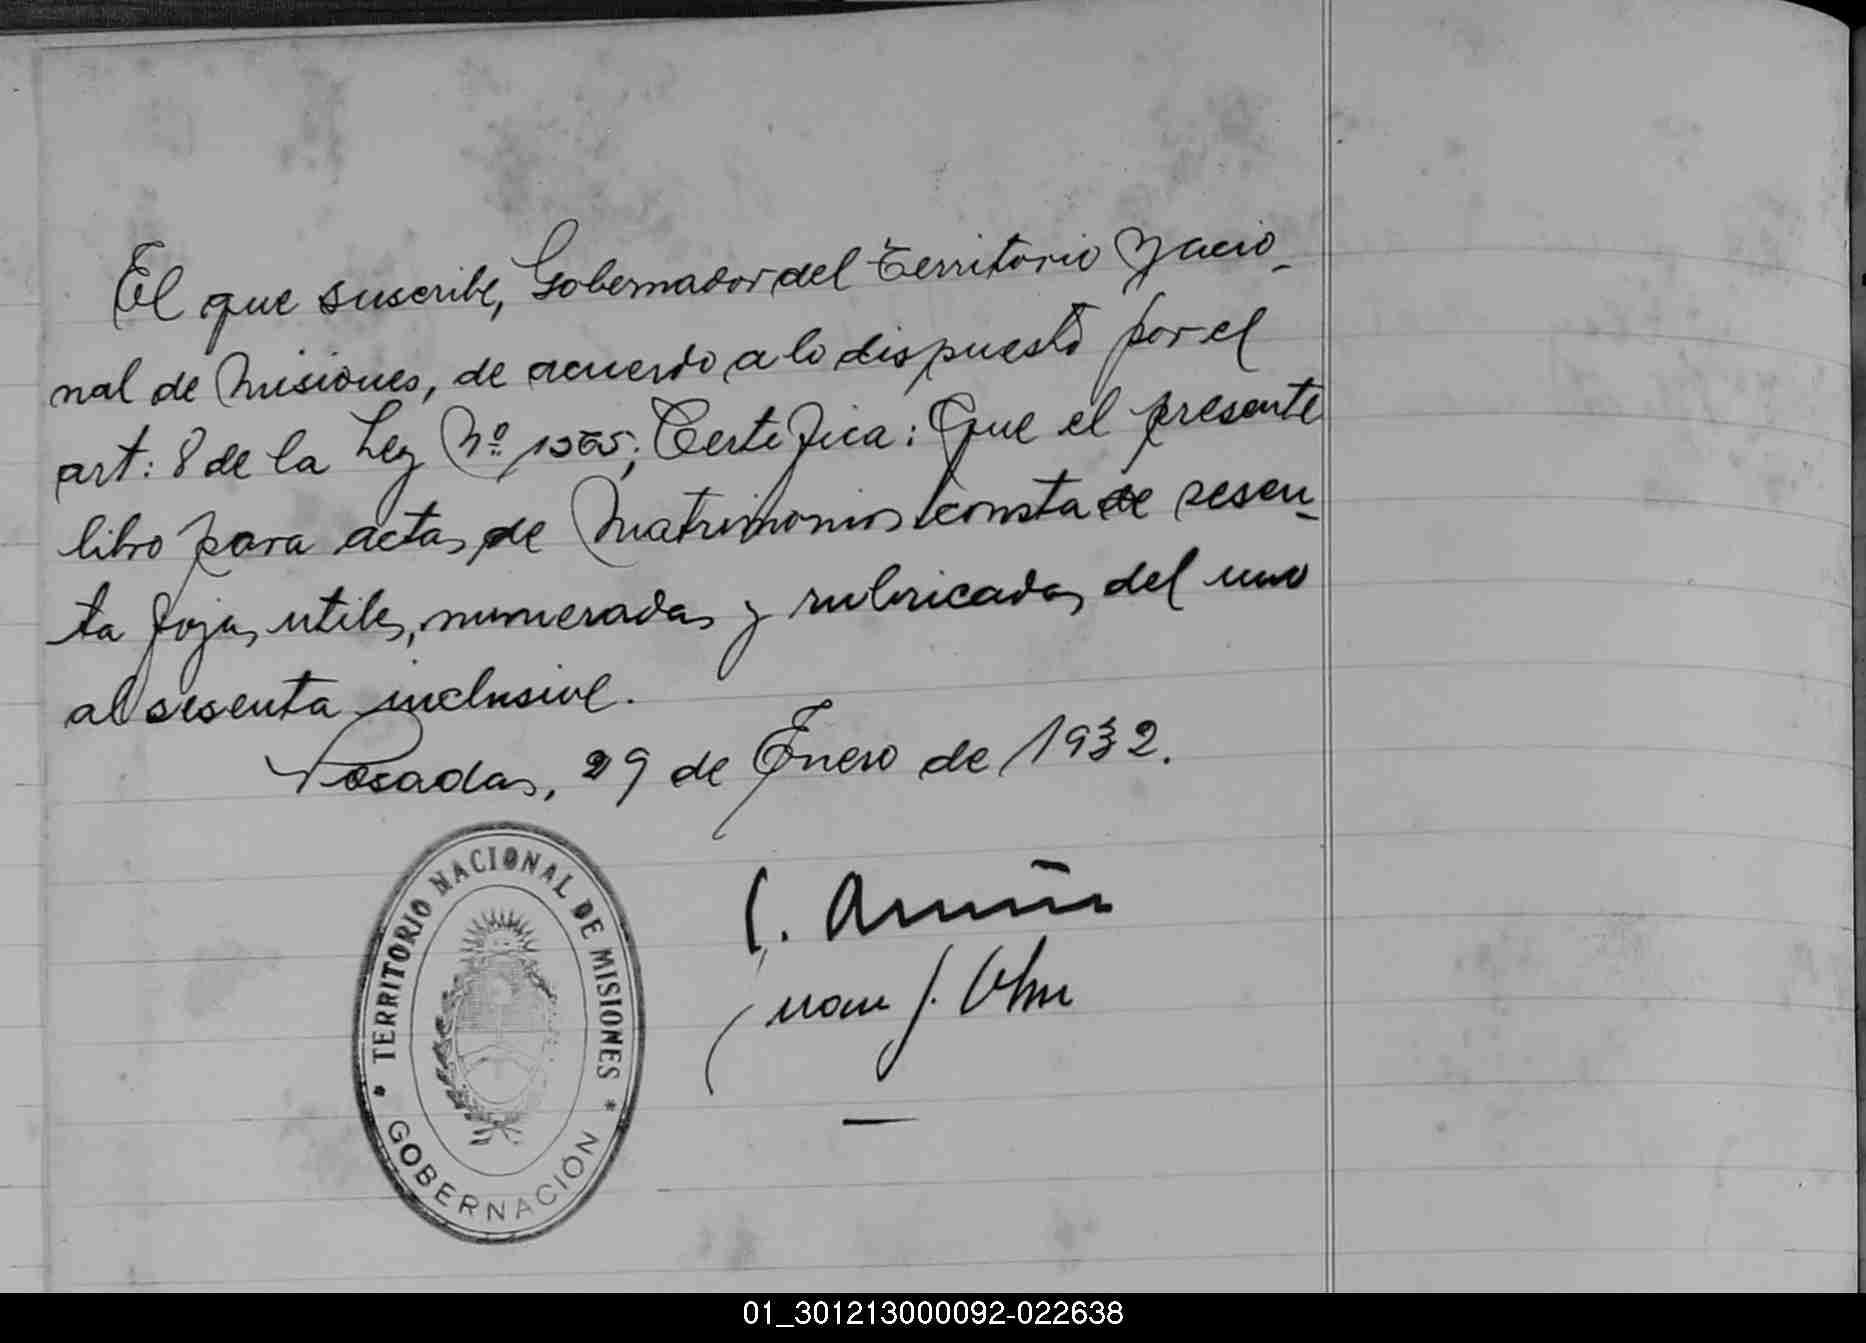 El que suscribe, Gobernador del Territorio Nacio-
nal de Misiones, de acuerdo a lo dispuesto por el
art: 8 de la Ley Nº 1565; Certifica: Que el presente
libro para actas de Matrimonios consta de sesen-
ta fojas utiles, numeradas y rubricadas del uno
al sesenta inclusive.
Posadas, 29 de Enero de 1932.
TERRITORIO NACIONAL DE MISIONES
* GOBERNACIÓN *
Juan J.
01_301213000092-022638